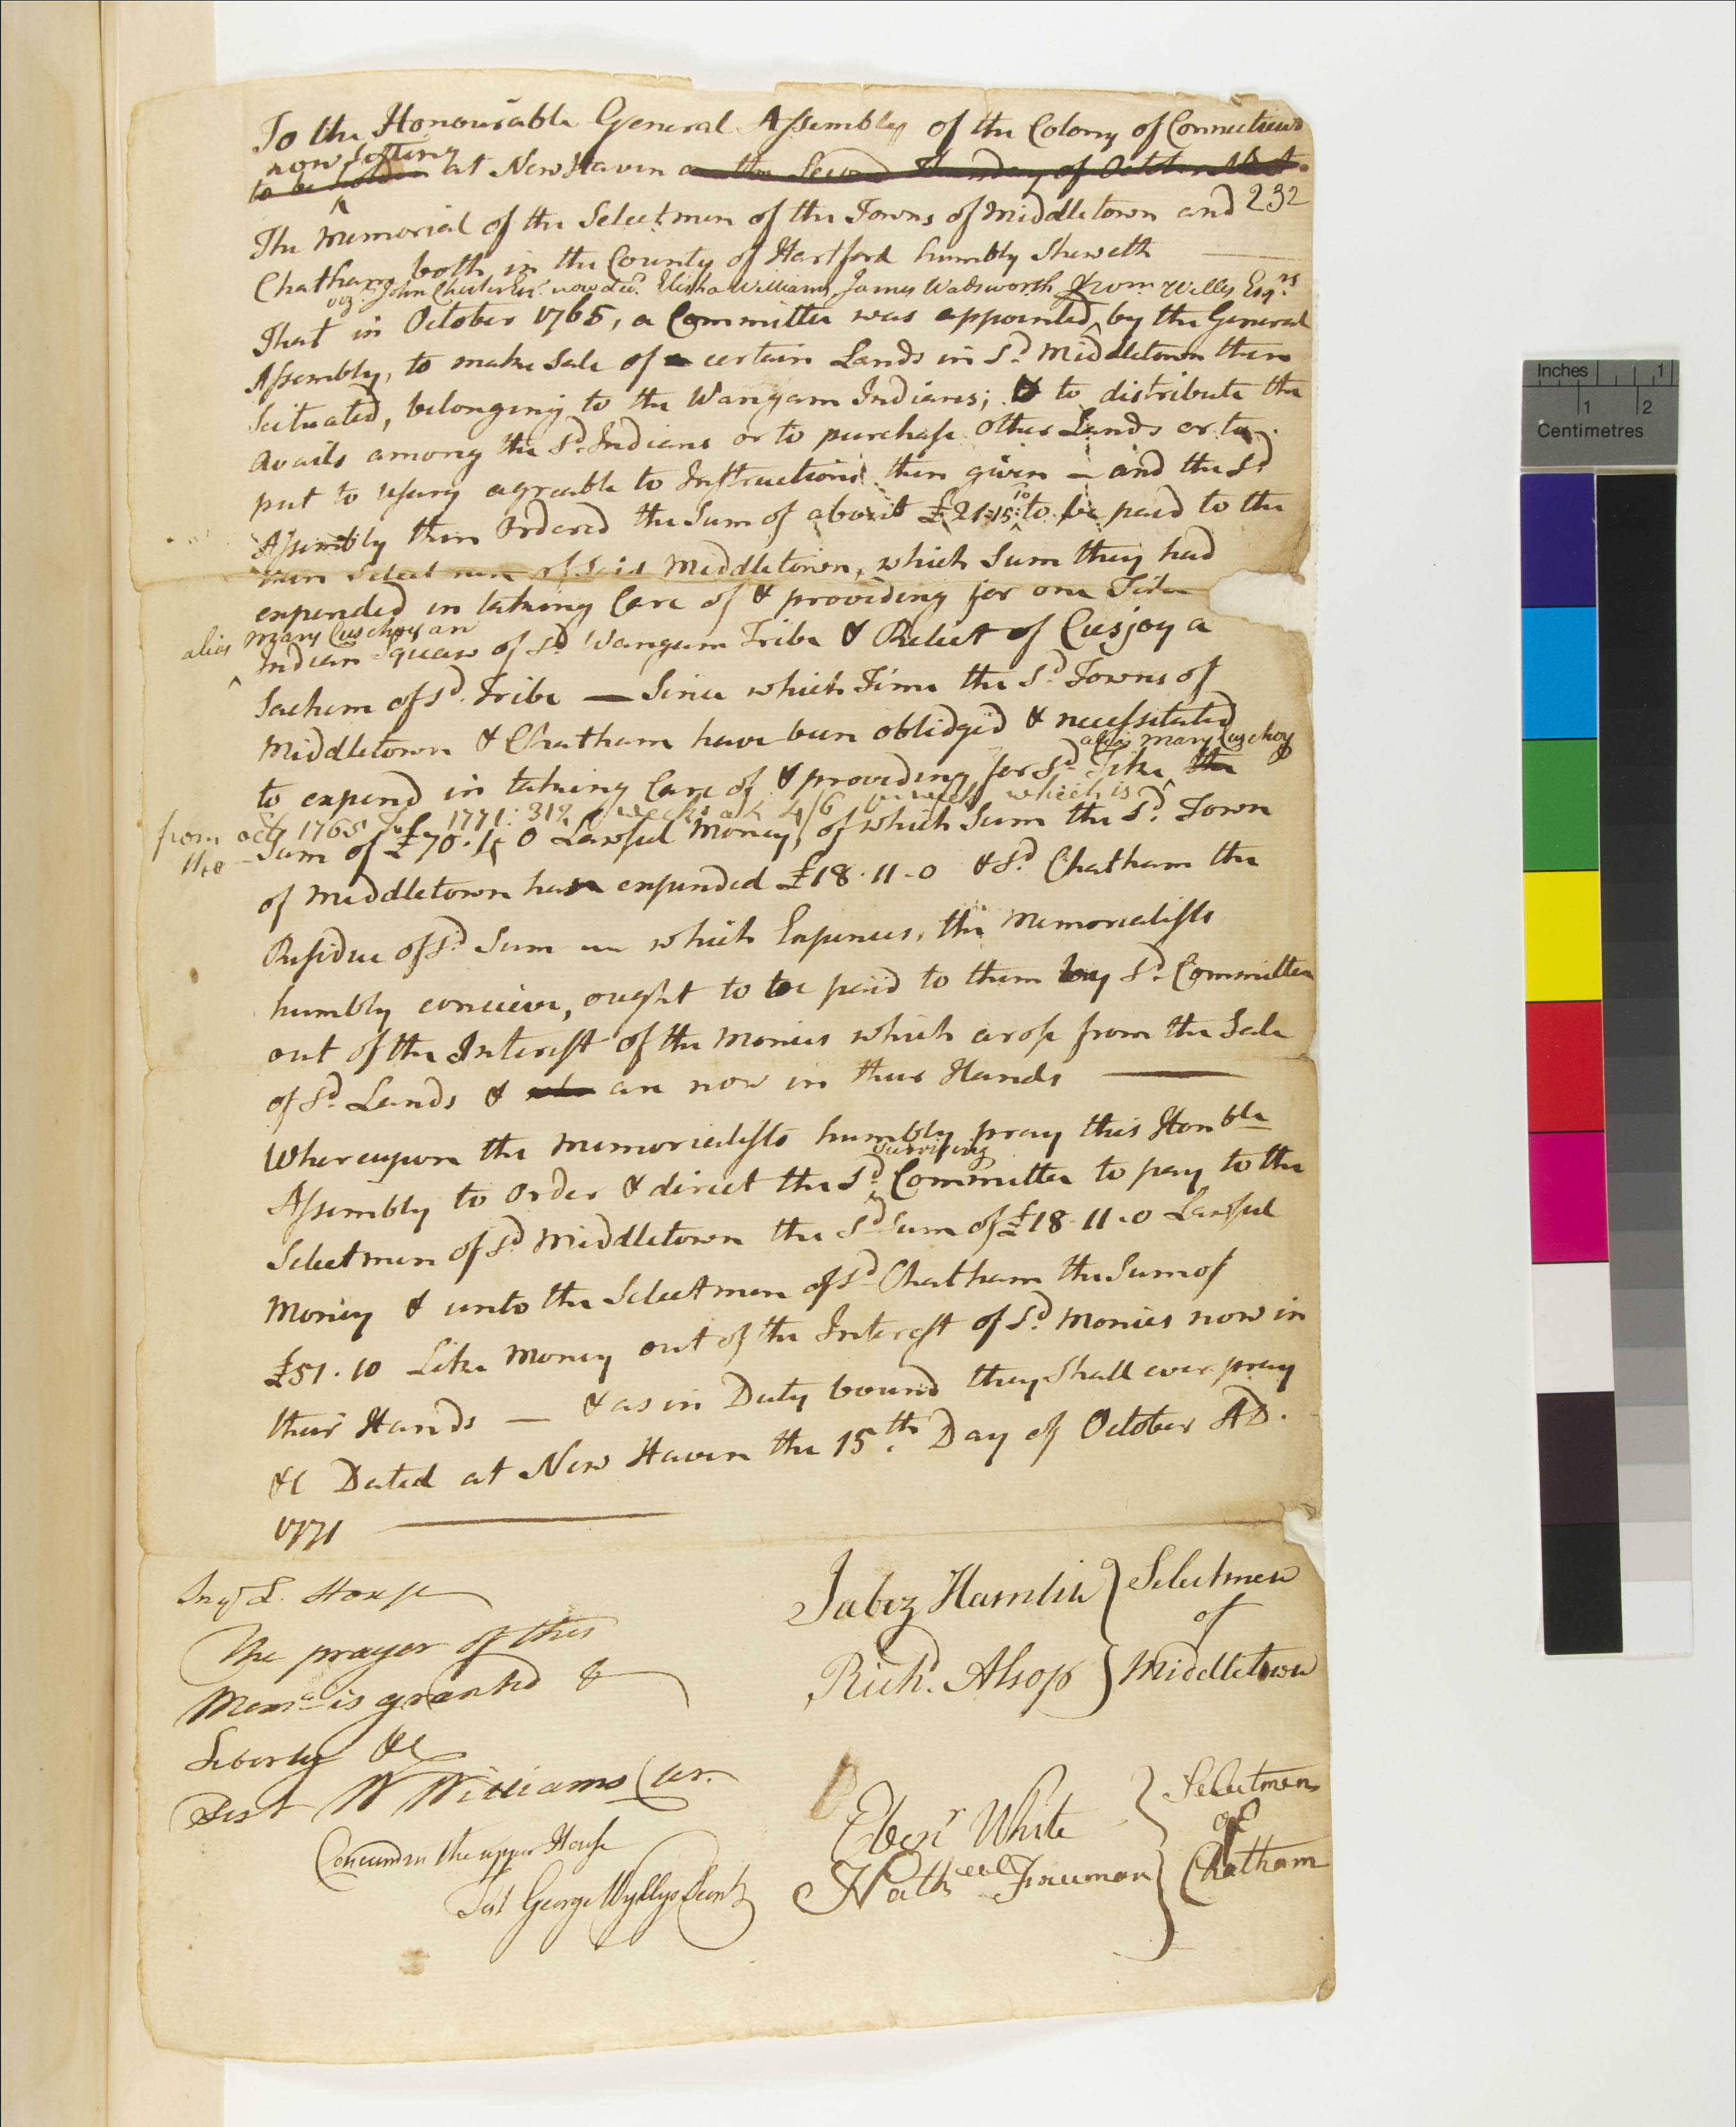 To the Honourable General Assembly of the Colony of Connecticut
now sitting
to be holden at New Haven on the Second Thursday of October Next.
232
The Memorial of the Select men of the Towns of Middletown and
Chatham both in the County of Hartford humbly Sheweth
viz. John Chester Esqr. now decd. Elisha Williams, James Wadsworth Esqrs
That in October 1765, a Committee was appointed by the General
Assembly, to make Sale of certain Lands in Sd. Middletown then
Scituated, belonging to the Wangam Indians; & to distribute the
Avails among the Sd. Indians or to purchase other Lands or to
put to usury agreable to Instructions then given — and the Sd
Assembly then Ordered the Sum of about £21:15:10 to be paid to the
then Select men of Said Middletown, which Sum they had
expended in taking Care of & providing for one Tike
alias Mary Cuschoy an
Indian Squaw of Sd Wangum Tribe & Relict of Cusjoy a
Sachem of Sd. Tribe — Since which Time the Sd. Towns of
Middletown & Chatham have been oblidgd & necessitated
alias Mary Cuschoy
to expend in taking Care of & providing for Sd Tike the
from Octr 1765 to 1771: 312 weeks at 4/6 pr week which is
the Sum of £70.4.0 Lawful Money, of which Sum the Sd. Town
of Middletown have expended £18.11.0 & Sd. Chatham the
Residue of Sd. Sum which Expences, the Memorialists
humbly concieve, ought to be paid to them by Sd. Committee
out of the Interest of the Monies which arose from the Sale
of Sd. Lands & are now in their Hands
Whereupon the Memorialists humbly pray this Honble
surviving
Assembly to Order & direct the Sd. Committee to pay to the
Selectmen of Sd Middletown the Sd Sum of £18.11.0 Lawful
Money & unto the Selectmen of Sd Chatham the Sum of
£51.10 Like Money out of the Interest of Sd. Monies now in
their Hands — & as in Duty bound they Shall ever pray
&c Dated at New Haven the 15th. Day of October AD.
1771
In ye L. House
The prayer of this
Meml is granted &
Liberty &c
Test W Williams Cler.
Concurrd in the upper House
Test George Wyllys Secretr
Jabez Hamlin } Selectmen
of
Richd. Alsop } Middletown
Ebenr White } Selectmen
of
Nathaeel Freeman } Chatham
Inches 1
1 2
Centimetres